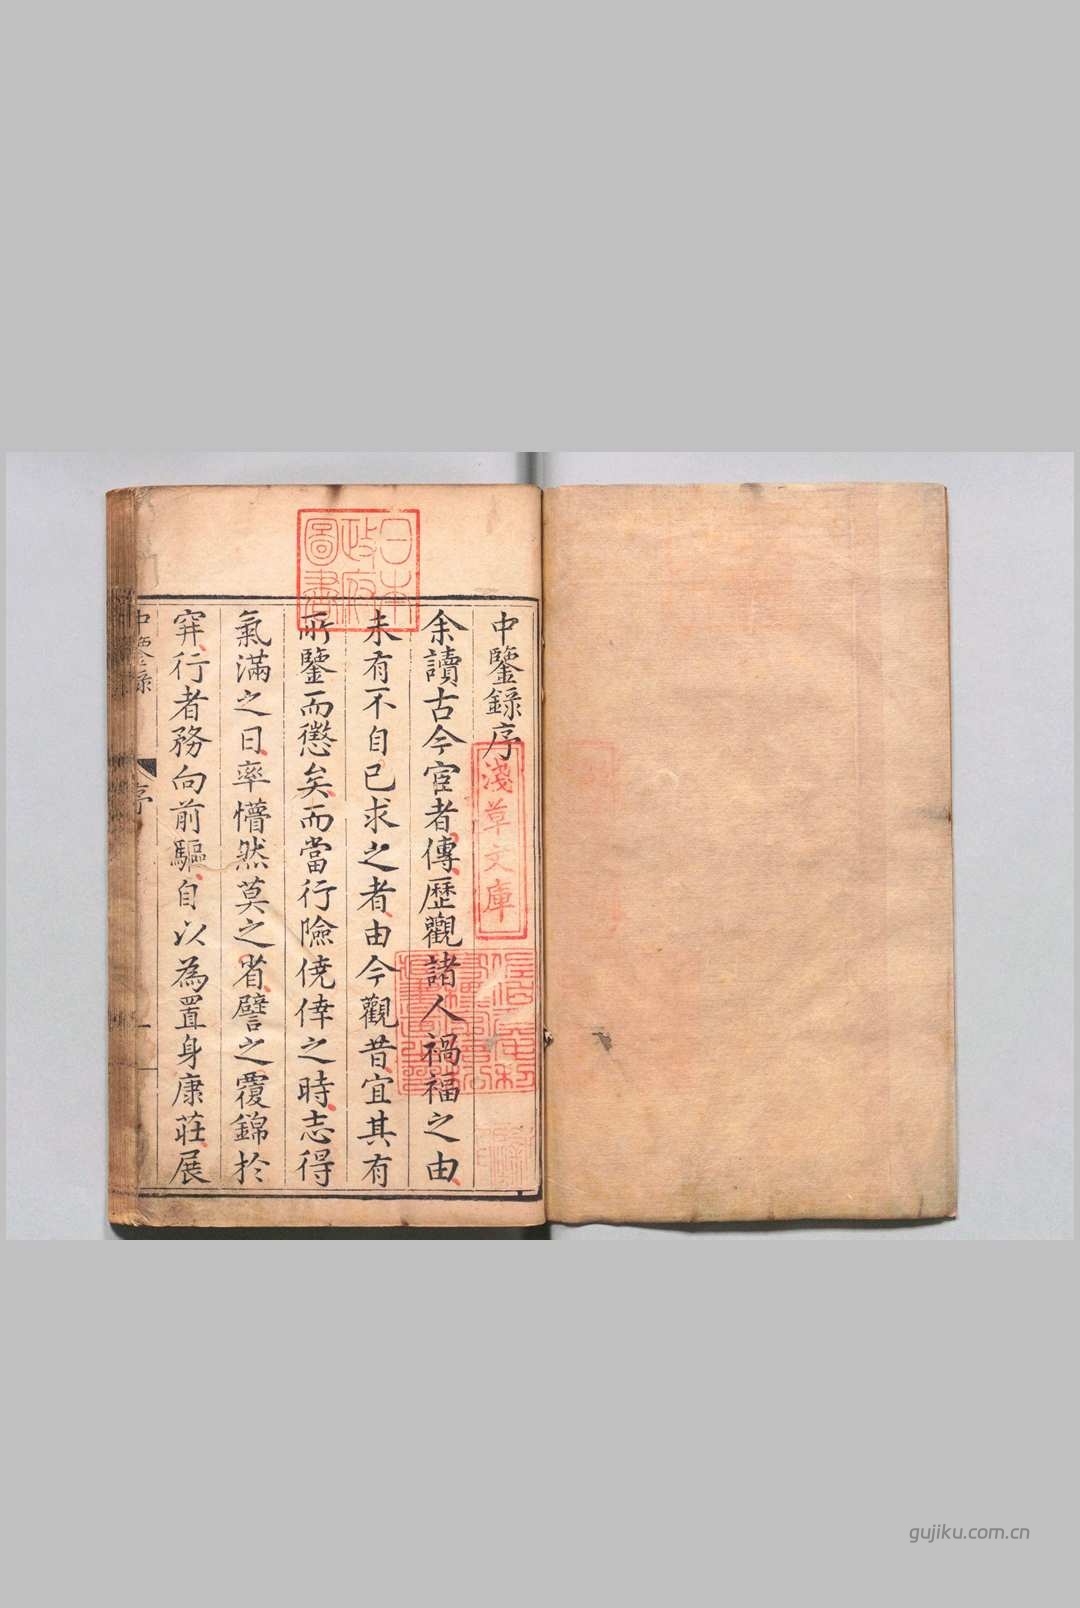 中鑒錄序
余讀古今宦者傳歷觀諸人禍福之由
未有不自己求之者由今觀昔宜其有
所鑒而懲矣而當行險僥倖之時志得
氣滿之日率懵然莫之省譬之覆錦於
穽行者務向前驅自以為置身康莊展
中鑒錄
序
一
日本
政府
圖書
淺草文庫
gujiku.com.cn